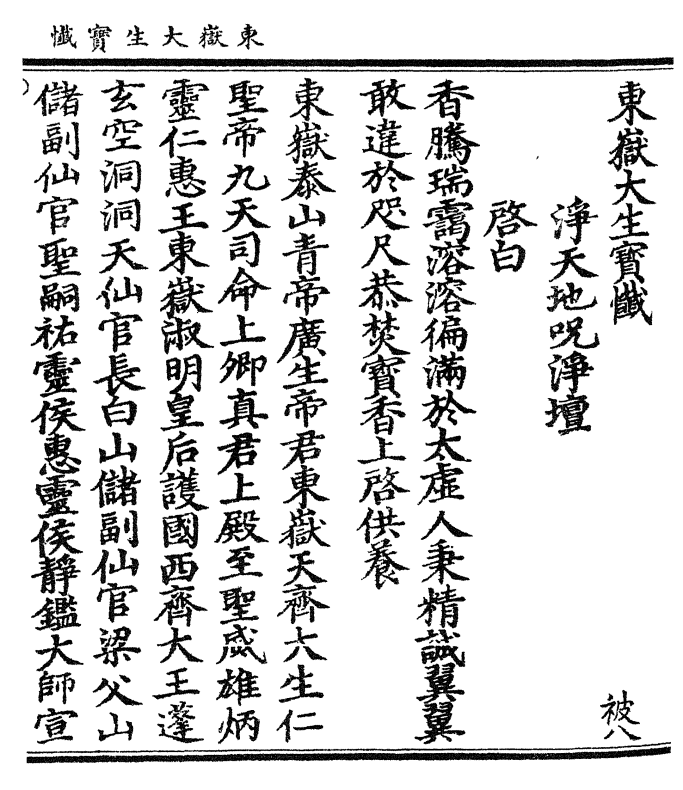 東嶽大生寶懺
東嶽大生寶懺 被八
淨天地呪淨壇
啓白
香騰瑞靄溶溶徧滿於太虛人秉精誠翼翼
敢違於咫尺恭焚寶香上啓供養
東嶽泰山青帝廣生帝君東嶽天齊大生仁
聖帝九天司命上卿真君上殿至聖威雄炳
靈仁惠王東嶽淑明皇后護國西齊大王蓬
玄空洞洞天仙官長白山儲副仙官梁父山
儲副仙官聖嗣祐靈侯惠靈侯靜鑑大師宣